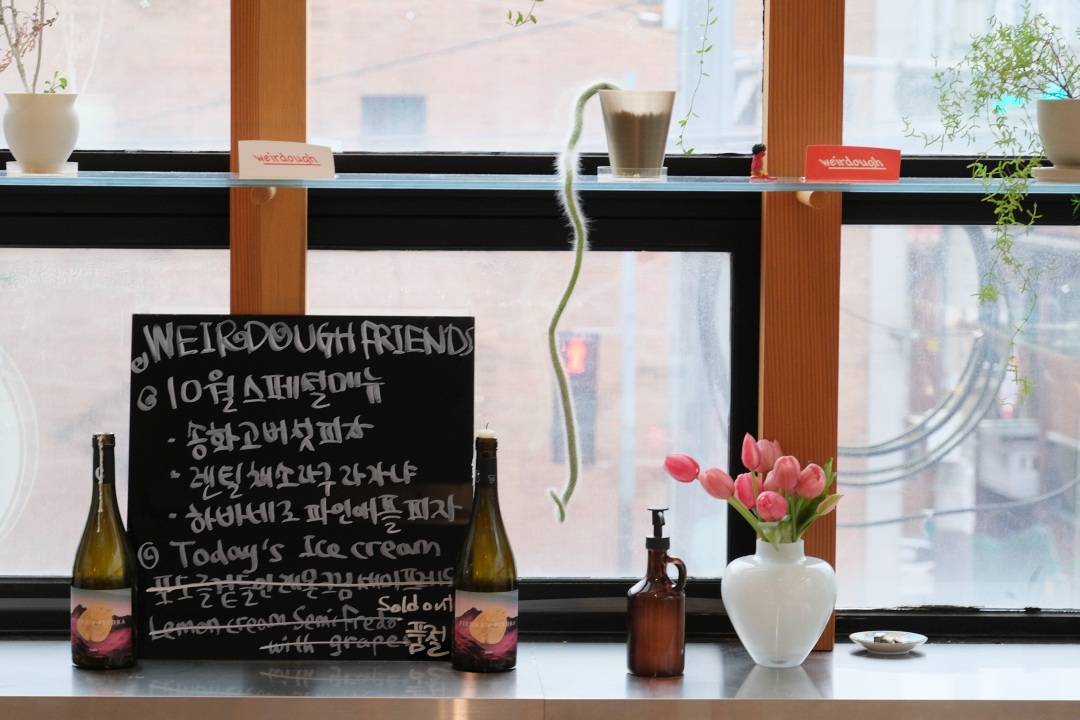 weirdough
weirdough
WEIRDOUGH FRIENDS
@ 10월 스페셜메뉴
· 송화고버섯피자
· 렌틸채소라구 라자냐
· 하바네로 파인애플 피자
@ Today's Ice cream
Sold out
Lemon cream Semifredo
with grape 품절